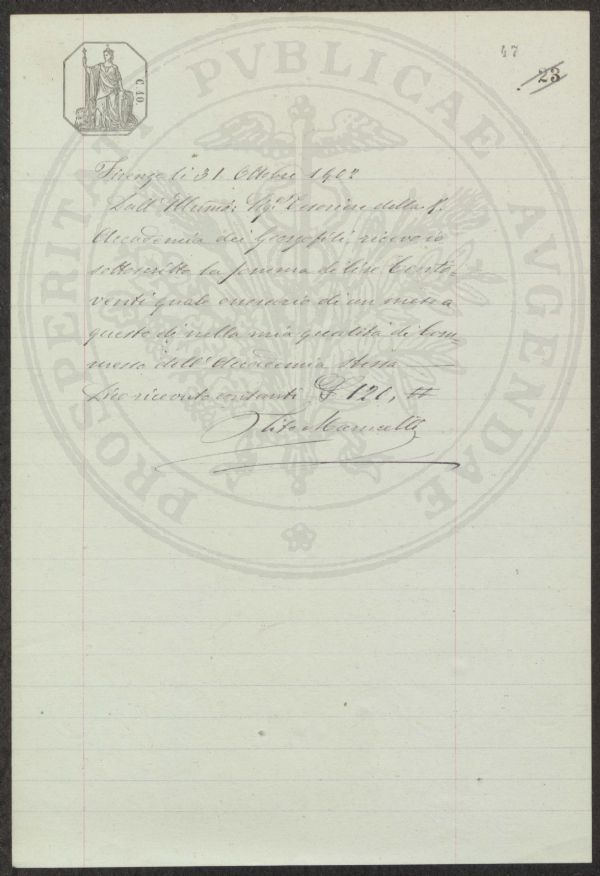 47
23
C. 10
PROSPERITATI PVBLICAE AVGENDAE
Firenze li 31 Ottobre 1902
Dall' Illmo: Sigr. Tesoriere della R.
Accademia dei Georgofili, ricevo io
sottoscritto la somma di lire Cento-
venti quale onorario di un mese a
questo dì nella mia qualità di Com-
messo dell' Accademia stessa
Dico ricevuto contanti £ 120, #
Tito